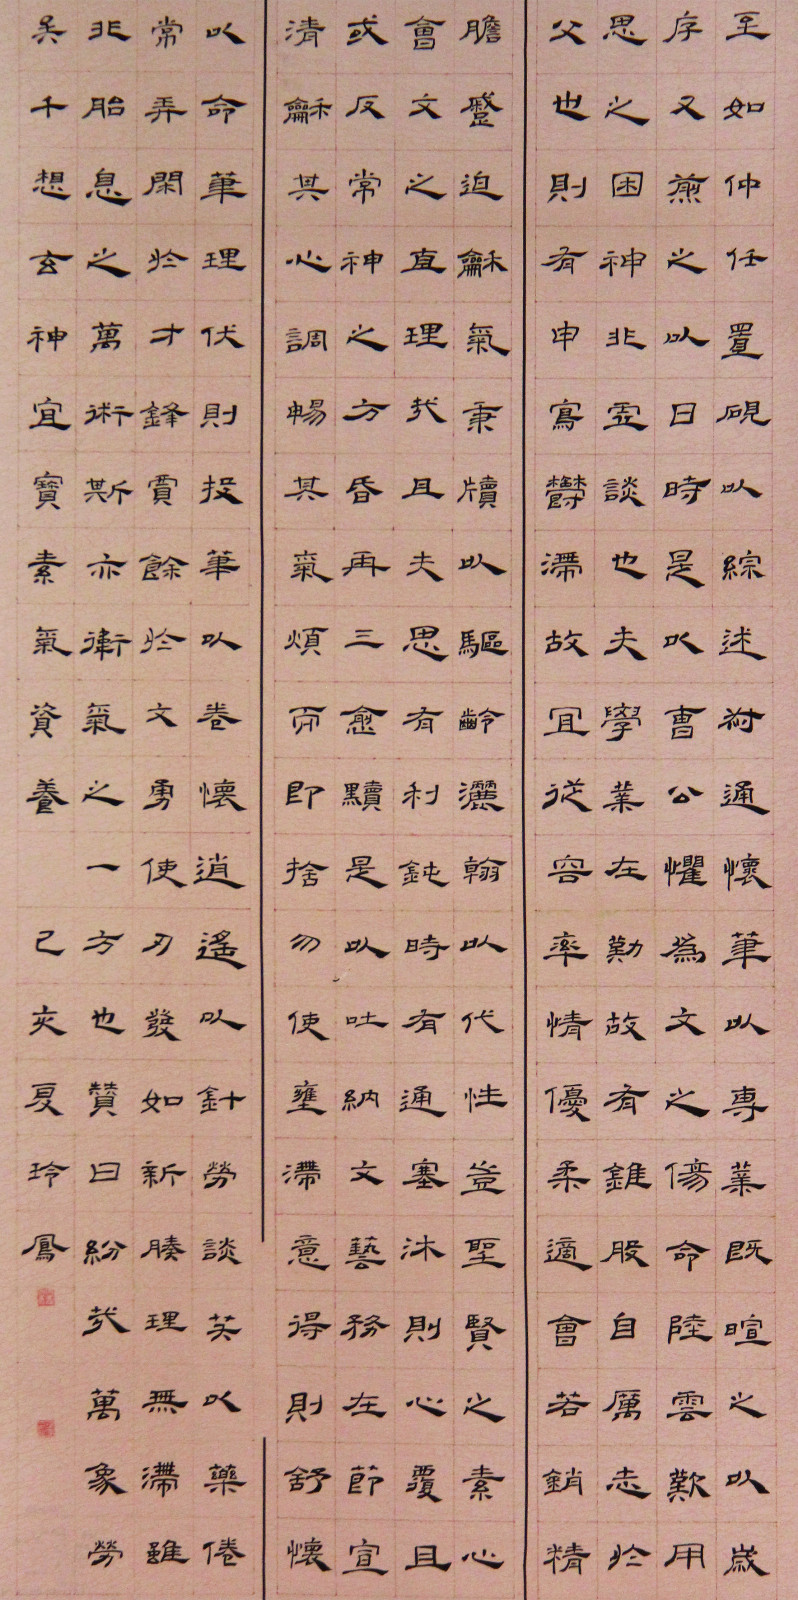 至如仲任置硯以綜述叔通懷筆以專業既暄之以歲
序又煎之以日時是以曹公懼為文之傷命陸雲歎用
思之困神非虛談也夫學業在勤故有錐股自厲志於
文也則有申寫鬱滯故宜從容率情優柔適會若銷精
膽蹙迫龢氣秉牘以驅齡灑翰以代性豈聖賢之素心
會文之直理哉且夫思有利鈍時有通塞沐則心覆且
或反常神之方昏再三愈黷是以吐納文藝務在節宣
清龢其心調暢其氣煩而即捨勿使壅滯意得則舒懷
以命筆理伏則投筆以卷懷逍遙以針勞談笑以藥倦
常弄閑於才鋒賈餘於文勇使刃發如新腠理無滯雖
非胎息之萬術斯亦衛氣之一方也贊曰紛哉萬象勞
矣千想玄神宜寶素氣資養 己亥夏玲鳳